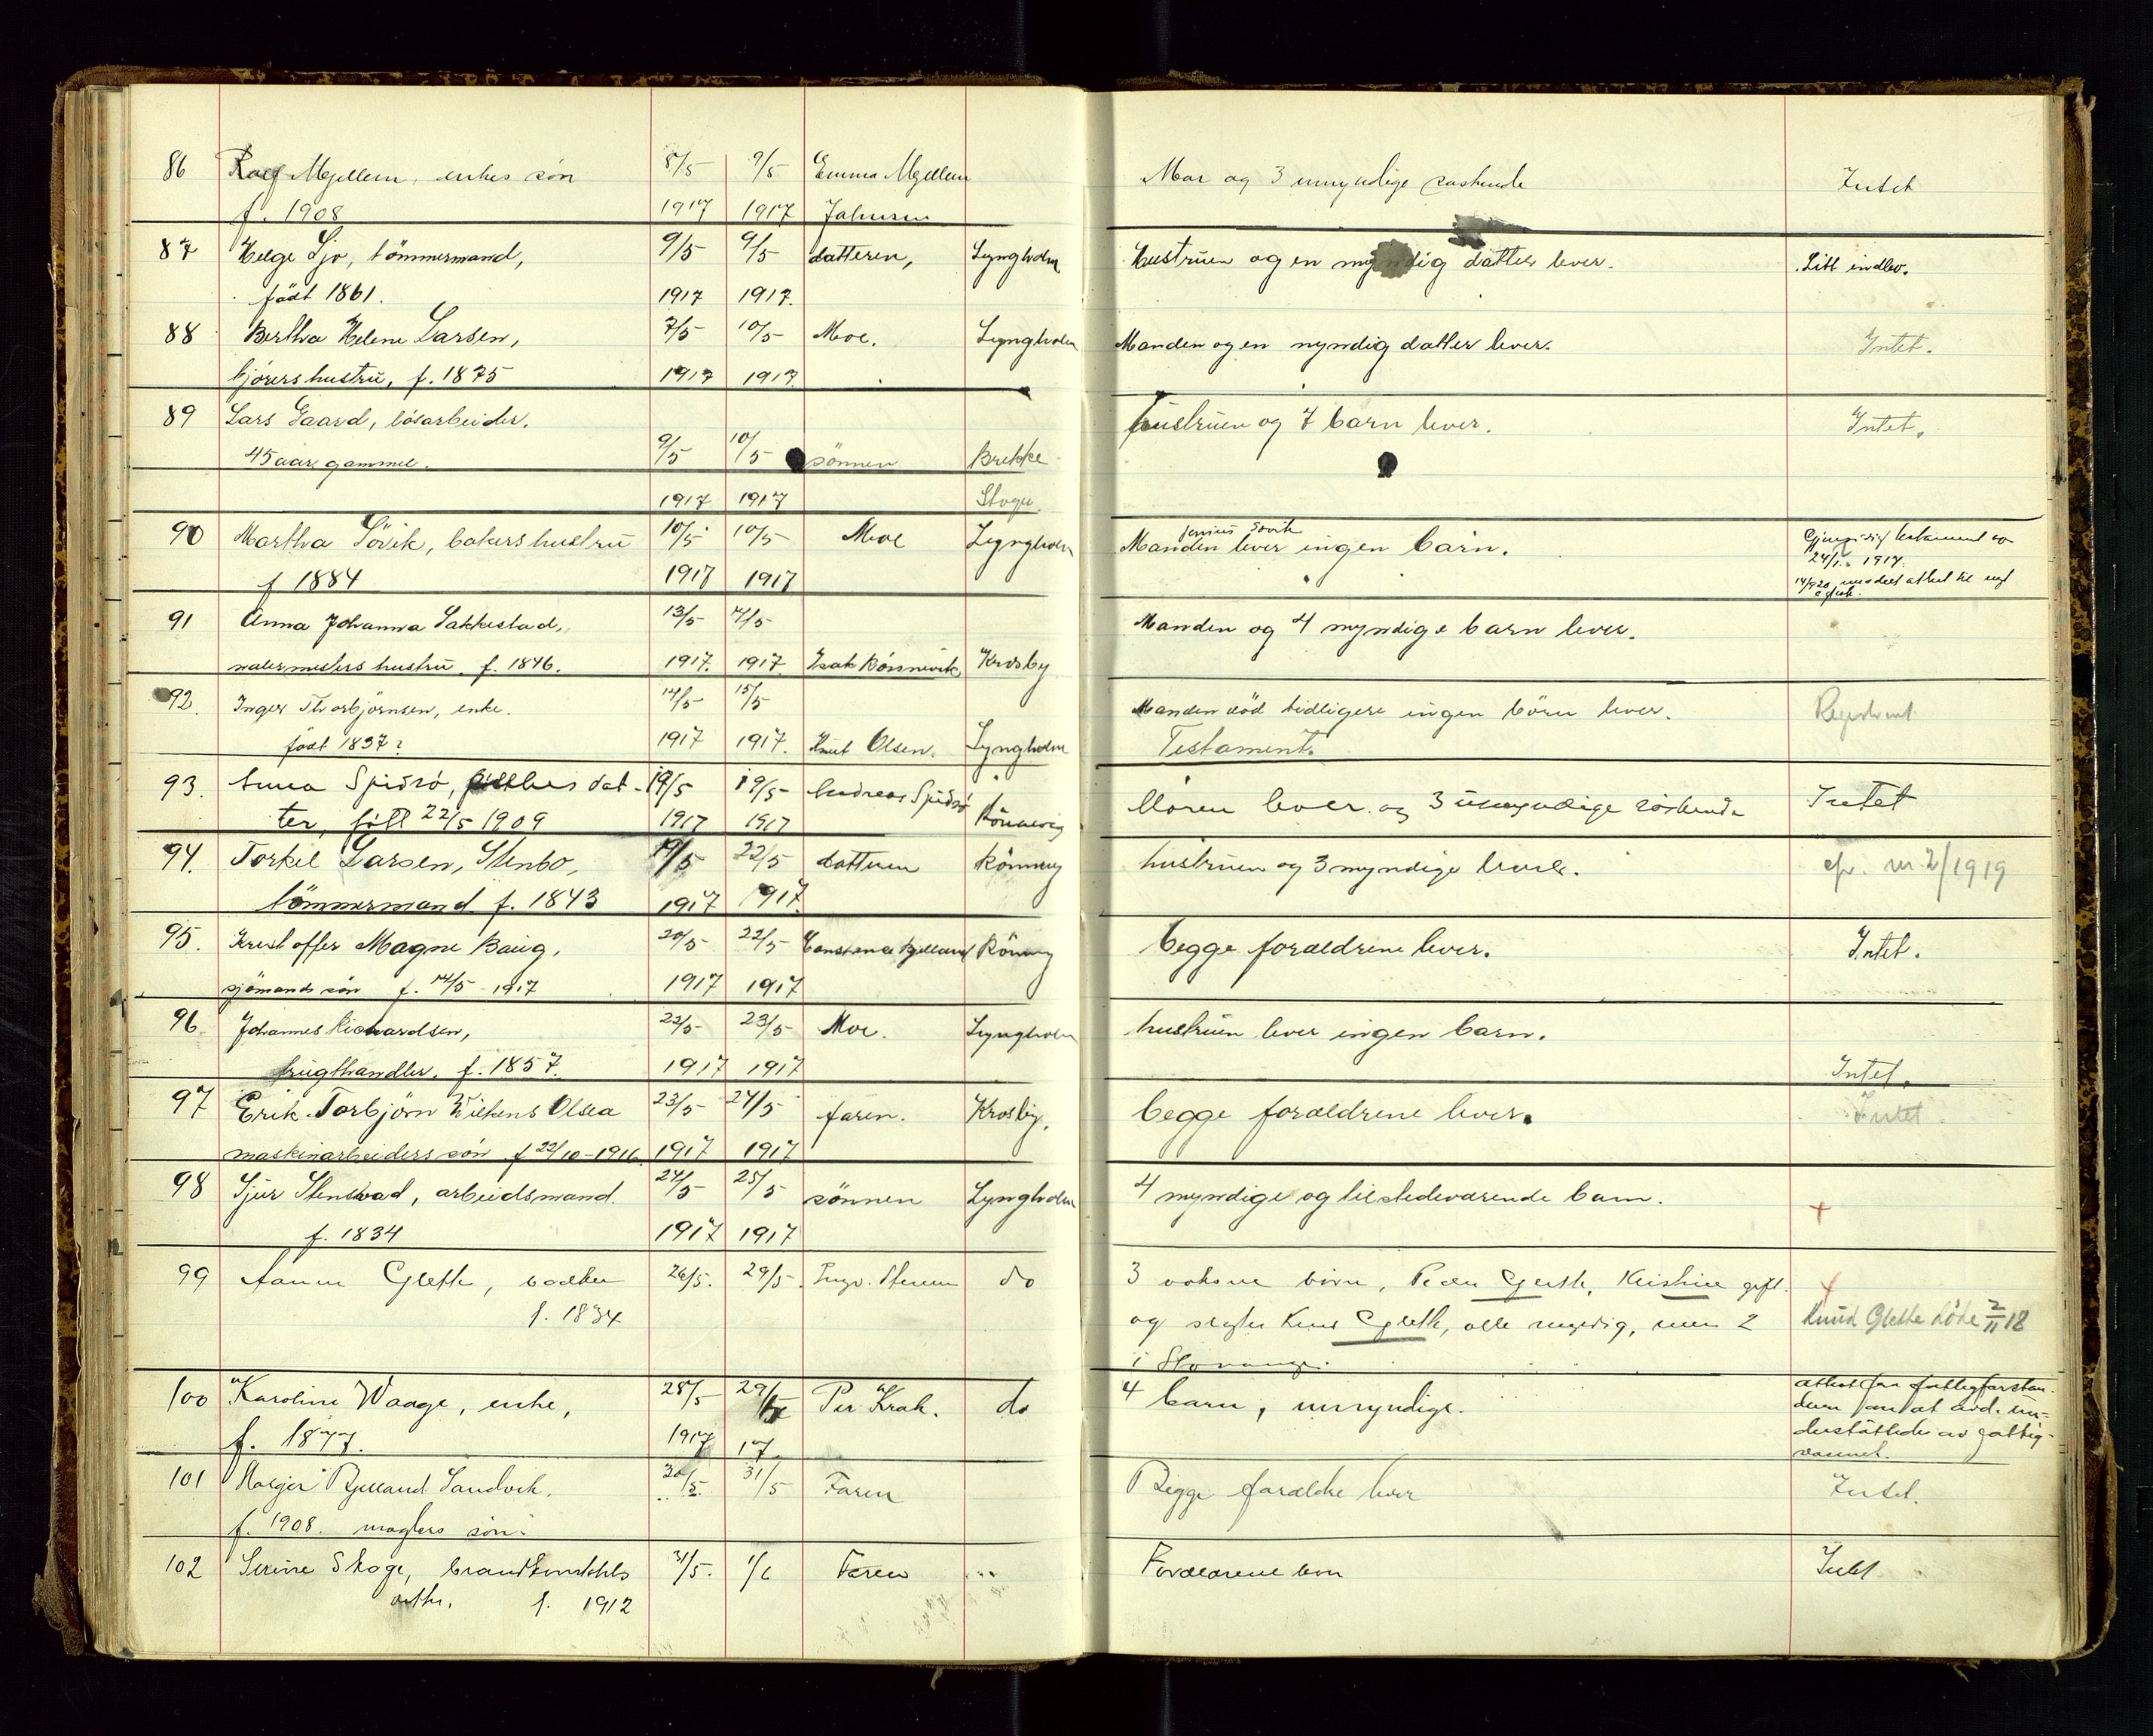 86 Rolf Mjellem, enkes søn 8/5 9/5 Emma Mjellem Mor og 3 umyndige søskende Intet
f. 1908 1917 1917 Johnsen
87 Helge Sjo, tömmermand, 9/5 9/5 datteren, Lyngholm Hustruen og en myndig datter lever. Litt indbo.
födt 1861. 1917 1917.
88 Bertha Helene Larsen, 7/5 10/5 Moe. Lyngholm Manden og en myndig datter lever. Intet.
kjörers hustru, f. 1875 1917 1917.
89 Lars Gaard, lösarbeider. hustruen og 7 barn lever. Intet.
45 aar gammel. 9/5 10/5 sönnen Brekke
1917 1917 Stoge.
90 Martha Sövik, bakers hustru 10/5 10/5 Moe Lyngholm Manden Sövik lever ingen barn. Gjensidig testament av
f 1884 1917 1917 24/1 1917.
14/9 20 attest til
91 Anna Johanna Sakkestad, 13/5 14/5 Manden og 4 myndige barn lever.
malermesters hustru. f. 1846. 1917. 1917 Isak Rönnevik Krosby
92. Inger Thorbjörnsen, enke. 14/5 15/5 Manden död tidligere ingen börn lever.
födt 1837? 1917 1917. Knut Olsen. Lyngholm Testament.
93. Anna Spidsö, dat- 19/5 19/5 Andreas Spidsö Moren lever og 3 umyndige söskende Intet
ter, fött 22/5 1909 1917 1917 Rönnevig
94. Torkel Larsen, Stenbo, 19/5 22/5 datteren Rönnevig hustruen og 3 myndige lever. cfr. nr. 2/1919
tömmermand f. 1843 1917 1917.
95. Kristoffer Magne Baug, 20/5 22/5 Constance Bjelland Rönnevig begge foraldrene lever. Intet.
sjömands sön f. 14/5 - 1917 1917 1917
96. Johannes Richardsen, 22/5 23/5 Moe. Lyngholm hustruen lever ingen barn.
frugthandler. f. 1857. 1917 1917 Intet.
97 Erik Torbjörn Wilkens Olsen 23/5 24/5 faren. Krosby. begge foraldrene lever. Intet.
maskinarbeiders sön f 22/10 - 1916. 1917 1917
98 Sjur Stensvad, arbeidsmand. 24/5 25/5 sönnen Lyngholm 4 myndige og tilstedevarende barn. +
f. 1834 1917 1917
99 Glette, bödker 26/5. 29/5. Ingv. do 3 voksne börn, Peder Glette, Kristine gift. +
f. 1834 og Knud Glette, alle myndig, men 2 Knud Glette döde 2/11 18
i Stavanger.
100 Karoline Waage, enke, 28/5 29/5 Per Krak. do 4 barn, umyndige. attest fra fattigforstan-
f. 1877. 1917 17. deren om at avd. un-
derstöttedes av fattig-
vesenet.
101 Bjelland Sandvik. 30/5. 31/5 Faren Begge foraldre lever Intet.
f. 1908. maglers sön.
102 Serine Skoge, brandkonstabls 31/5. 1/6 Faren Foraldrene lever Intet
datter. f. 1912